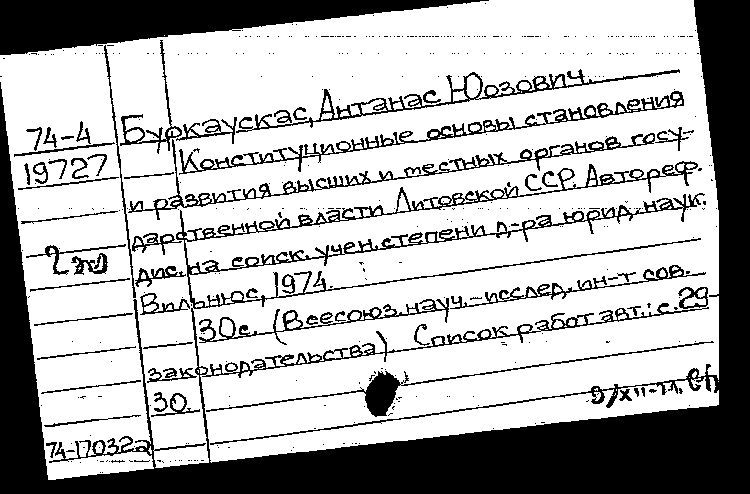 74-4
19727
2 экз
Буркаускас, Антанас Юозович.
Конституционные основы становления
и развития высших и местных органов госу-
дарственной власти Литовской ССР. Автореф.
дис. на соиск. учен. степени д-ра юрид. наук.
Вильнюс, 1974.
30с. (Всесоюз. науч.-исслед. ин-т сов.
законодательства). Список работ авт.: с. 29-
30.
74-17032а